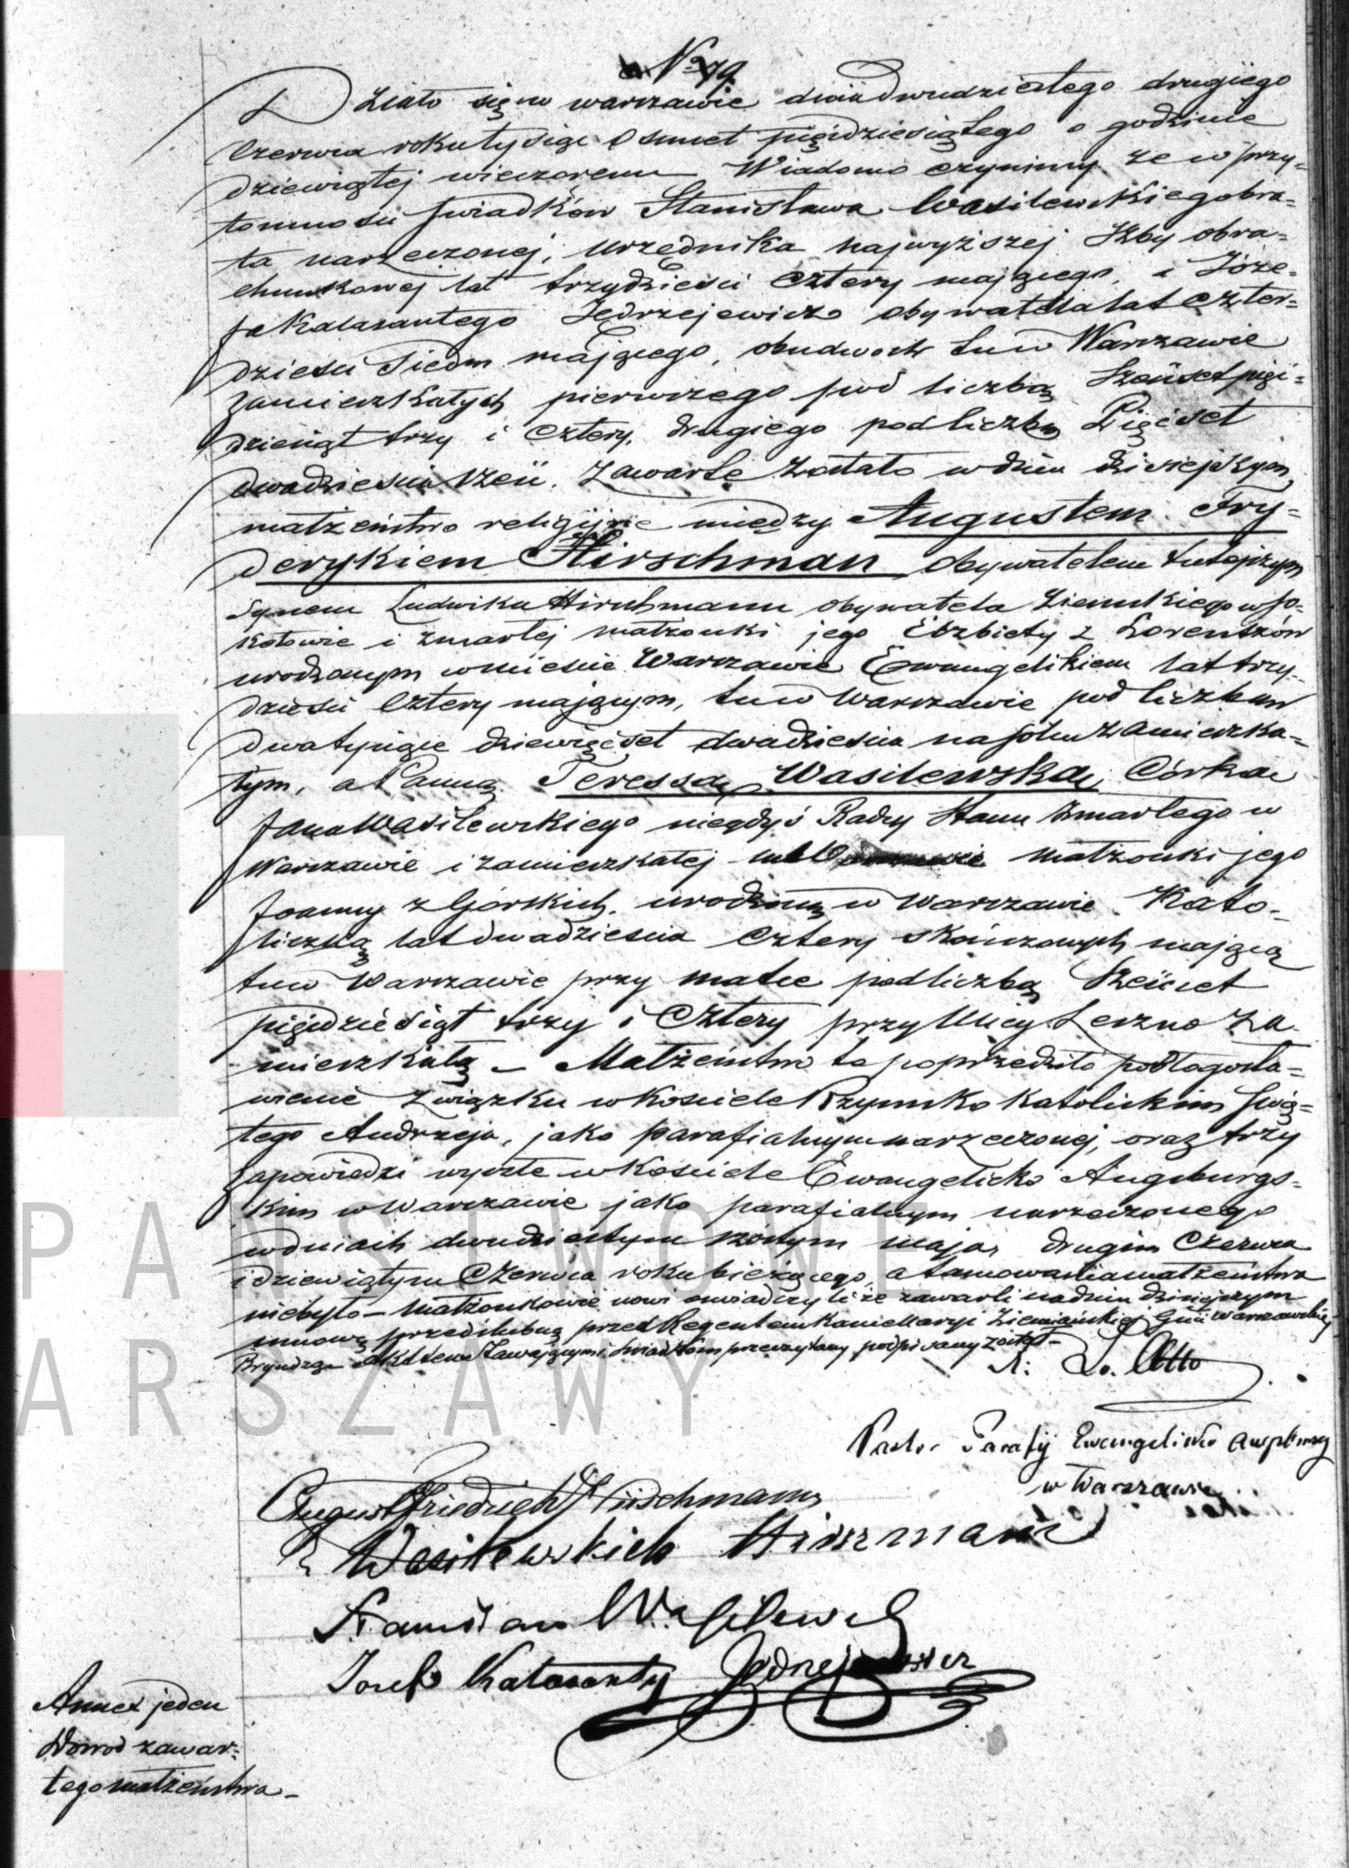 No 79
Działo się w Warszawie dnia dwudziestego drugiego
Czerwca roku tysiąc Osmset pięćdziesiątego o godzinie
dziewiątej wieczorem Wiadomo czynimy że w przy=
tomności świadków Stanisława Wasilewskiego bra=
ta narzeczonej, urzędnika najwyższej Izby obra=
chunkowej lat trzydzieści cztery mającego, i Józe=
fa Kalasantego Jedrzejewicza obywatela lat czter=
dzieści siedm mającego, obudwóch tu w Warszawie
zamieszkałych pierwszego pod liczbą Sześset pięć=
dziesiąt trzy i cztery, drugiego pod liczbą Pięćset
dwadzieścia sześć, Zawarte zostało w dniu dzisiejszym
małżeństwo religijne między Augustem Fry=
derykiem Hirschman, obywatelem tutejszym
Synem Ludwika Hirschmann obywatela Ziemskiego w So=
kołowie i zmarłej małżonki jego Elżbiety z Lorentzów
urodzonym w mieście Warszawie Ewangelikiem lat trzy=
dzieści cztery mającym, tu w Warszawie pod liczbą
dwa tysiące dziewięćset dwadzieścia na Solcu zamieszka=
łym, a Panną Teressą Wasilewską, Córką
Jana Wasilewskiego niegdyś Radcy Stanu zmarłego w
Warszawie i zamieszkałej małżonki jego
Joanny z Górskich, urodzoną w Warszawie. Kato=
liczką lat dwadzieścia cztery skończonych mającą
tu w Warszawie przy matce pod liczbą Sześćset
pięćdziesiąt trzy i cztery przy Ulicy Leszno za=
mieszkałą – Małżeństwo to poprzedziło pobłogosła=
wienie związku w kościele Rzymsko katolickim Swię=
tego Andrzeja, jako parafialnym narzeczonej, oraz trzy
zapowiedzi wyszłe w kościele Ewangelicko Augsburgs=
kim w Warszawie jako parafialnym narzeczonego
w dniach dwudziestym szóstym maja, drugim Czerwca
i dziewiątym Czerwca roku bieżącego, a tamowania małżeństwa
niebyło – Małżonkowie nowi oświadczyli że zawarli na dniu dzisiejszym
umowę przedślubną przed Regentem Kancellaryi Ziemiańskiej Gub: Warszawskiej
Bryndza Akt ten Stawającym i świadkom przeczytany podpisany został –
Ls. Otto
Pastor Parafij Ewangelicko Augsburskiej
w Warszawie
August Friedrich Hirschmann
z Wasilewskich Hirszmann
Stanisław Wasilewski
Józef Kalasanty Jędrzejewicz
Annex jeden
Dowód zawar=
tego małżeństwa –
PAŃSTWOWE
ARSZAWY